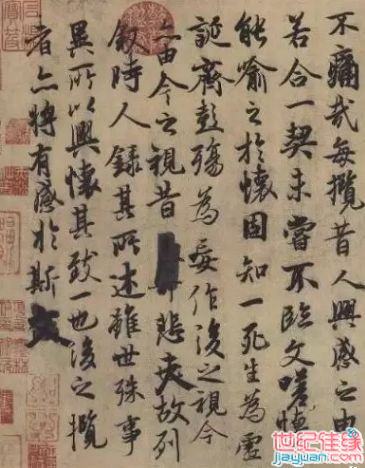 不痛哉每攬昔人興感之由
若合一契未嘗不臨文嗟悼
能喻之於懷固知一死生為虛
誕齊彭殤為妄作後之視今
亦由今之視昔悲夫故列
敘時人錄其所述雖世殊事
異所以興懷其致一也後之攬
者亦將有感於斯文
世纪佳缘
jiayuan.com